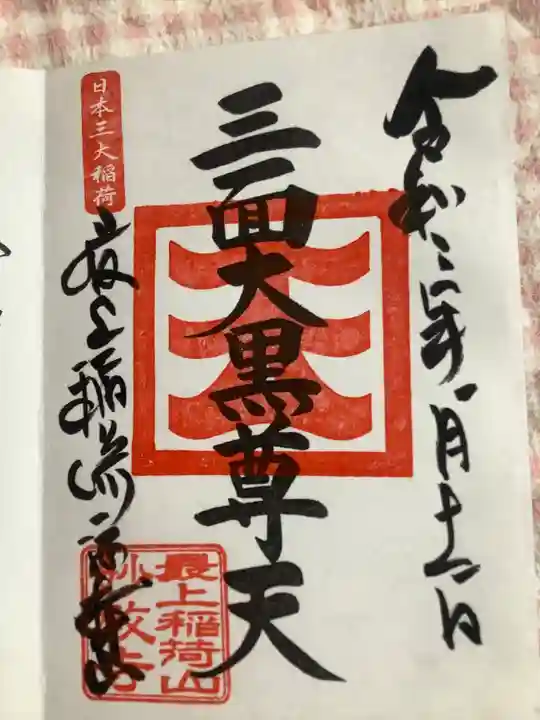 令和二年一月十一日
三面大黒尊天
日本三大稲荷
最上稲荷
最上稲荷山
妙教寺